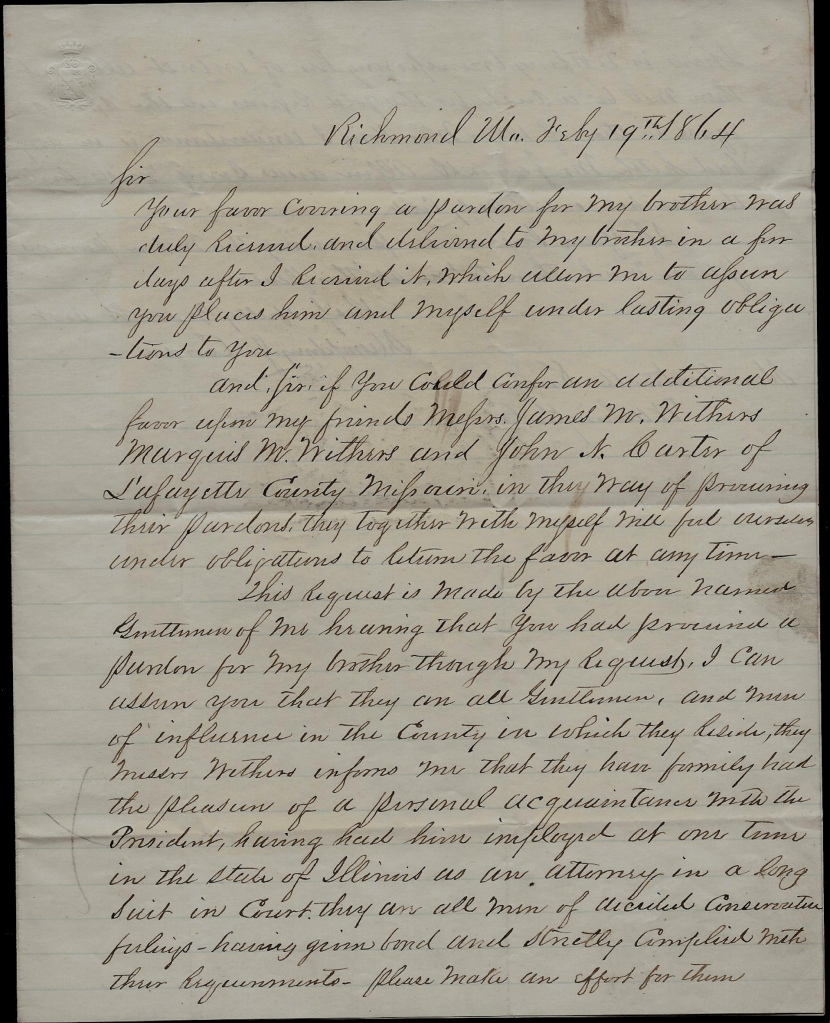 Richmond Mo. Feby 19th 1864
Sir
Your favor covering a pardon for my brother was
duly received and delivered to my brother in a few
days after I received it, which allow me to assure
you places him and myself under lasting obliga
-tions to you
and, Sir, if you could confer an additional
favor upon my friends Messrs. James M. Withers
Marquis M. Withers and John N. Carter of
Lafayette County Missouri, in they way of procuring
their pardons, they together with myself will feel ourselves
under obligations to return the favor at any time—
This request is made by the above named
Gentlemen of me hearing that you had procured a
pardon for my brother though my request, I can
assure you that they are all Gentlemen, and men
of influence in the County in which they reside, they
Messrs Withers informs me that they have formily had
the pleasure of a personal acquaintance with the
President, having had him imployed at one time
in the state of Illinois as an attorney in a long
suit in Court. they are all men of decided Conservative
feelings - having given bond and strictly complied with
their requirements - please make an effort for them